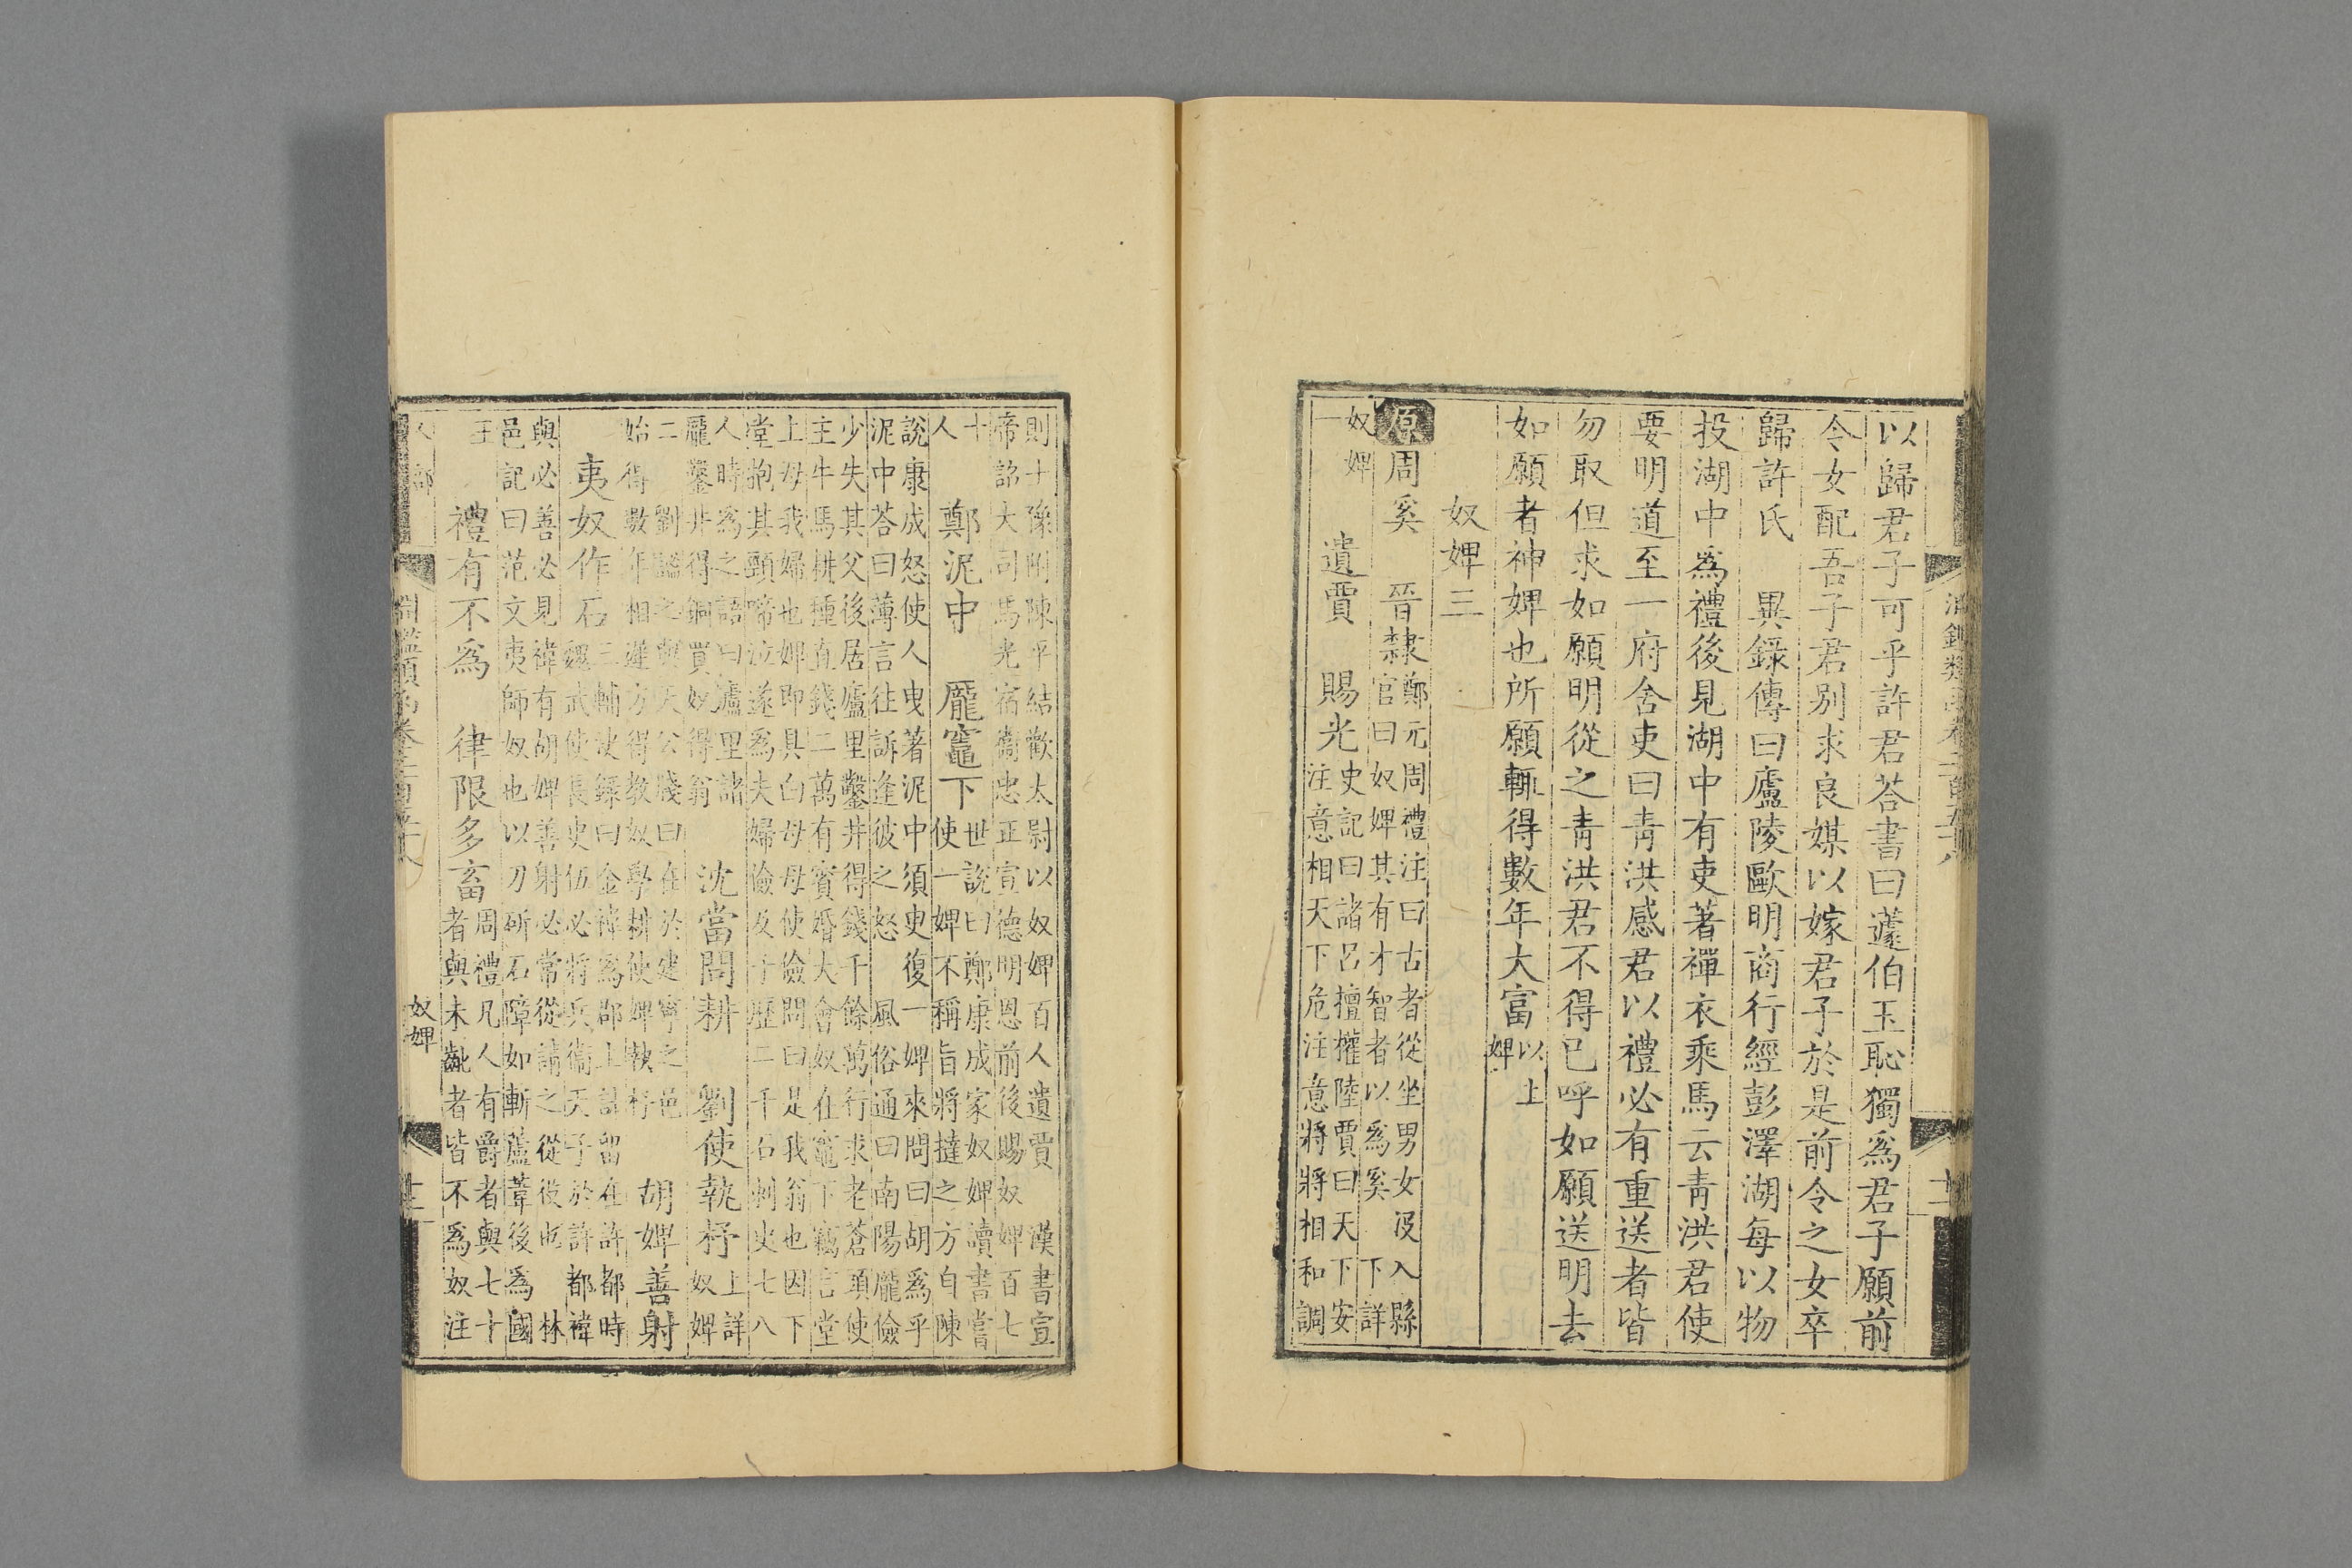 以歸君子可乎許君荅書曰蘧伯玉恥獨爲君子願前
令女配吾子君别求良媒以嫁君子於是前令之女卒
歸許氏　異録傳曰廬陵歐明商行經彭澤湖每以物
投湖中爲禮後見湖中有吏著襌衣乘馬云青洪君使
要明道至一府舍吏曰青洪感君以禮必有重送者皆
勿取但求如願明從之青洪君不得已呼如願送明去
如願者神婢也所願輒得數年大富以上
婢
奴婢三
原周奚　晉隸鄭元周禮注曰古者從坐男女沒入縣
官曰奴婢其有才智者以爲奚　下詳
奴婢
一　遺賈　賜光史記曰諸呂擅權陸賈曰天下安
注意相天下危注意將將相和調
則士豫附陳平結歡太尉以奴婢百人遺賈　漢書宣
帝詔大司馬光宿衞忠正宣德明恩前後賜奴婢百七
十
人　鄭泥中　龐竈下世說曰鄭康成家奴婢讀書嘗
使一婢不稱旨將撻之方自陳
說康成怒使人曳著泥中須臾復一婢來問曰胡爲乎
泥中荅曰薄言往訴逢彼之怒　風俗通曰南陽龐儉
少失其父後居廬里鑿井得錢千餘萬行求老蒼頭使
主牛馬耕種直錢二萬有賓婚大會奴在竈下竊言堂
上母我婦也婢即具白母母使儉問曰是我翁也因下
堂抱其頸啼泣遂爲夫婦儉及子歷二千石刺史七八
人時爲之語曰廬里諸
龐鑿井得銅買奴得翁　沈當問耕　劉使執杼上詳
奴婢
二　劉謐之與天公牋曰在於建寧之邑
始得數年相遲方得教奴學耕使婢執杼　胡婢善射
夷奴作石三輔决録曰金禕爲郡上計留在許都時
魏武使長史伍必將兵衞天子於許都禕
與必善必見禕有胡婢善射必常從請之從彼也　林
邑記曰范文夷師奴也以刀斫石障如斬蘆葦後爲國
王　禮有不爲　律限多畜周禮凡人有爵者與七十
者與未齔者皆不爲奴注
奴婢